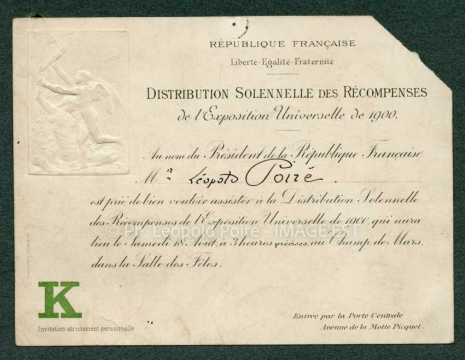 RÉPUBLIQUE FRANÇAISE
Liberté-Egalité-Fraternité
DISTRIBUTION SOLENNELLE DES RÉCOMPENSES
de l'Exposition Universelle de 1900.
Au nom du Président de la République Française
M. Léopold Poiré.
est prié de bien vouloir assister à la Distribution Solennelle
des Récompenses de l'Exposition Universelle de 1900, qui aura
lieu le Samedi 18 Août, à 3 heures précises, au Champ de Mars,
dans la Salle des Fêtes.
Ph. Léopold Poiré - IMAGE'EST
K
Invitation strictement personnelle
Entrée par la Porte Centrale
Avenue de la Motte Picquet